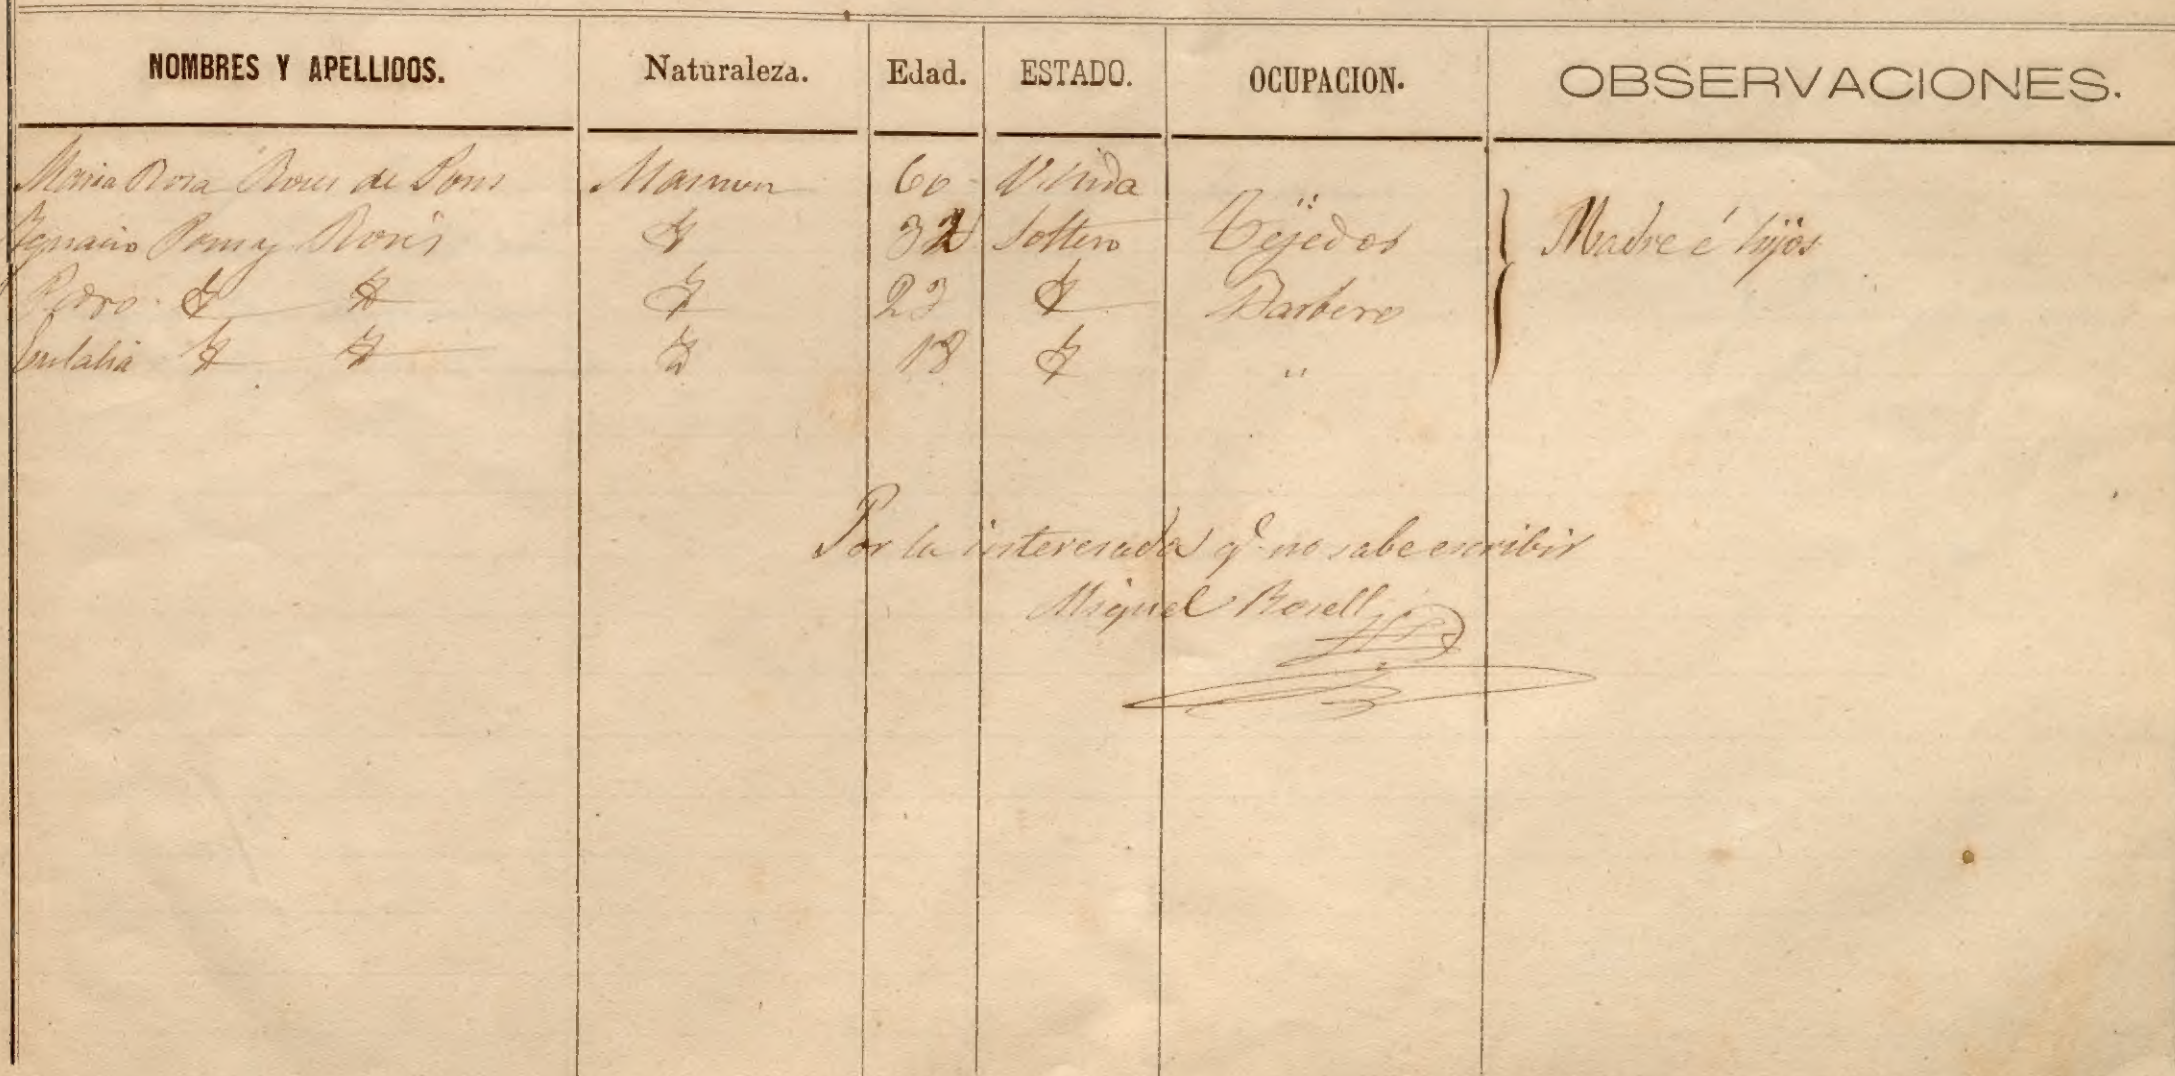 NOMBRES Y APELLIDOS. Naturaleza. Edad. ESTADO. OCUPACION. OBSERVACIONES.
Maria Rosa Roses de Pons 60 Viuda
Ygnacio Pons y Rosés 32 Soltero Téjedor Madre é hijos
Pedro 23 Barbero
Eulalia 18 "
Por la interesada q.e no sabe escribir
Miguel Rosell